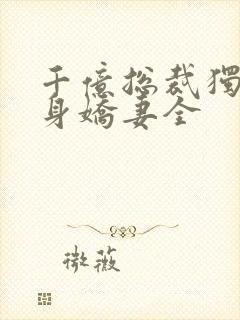 千億總裁獨
身嬌妻全
微薇